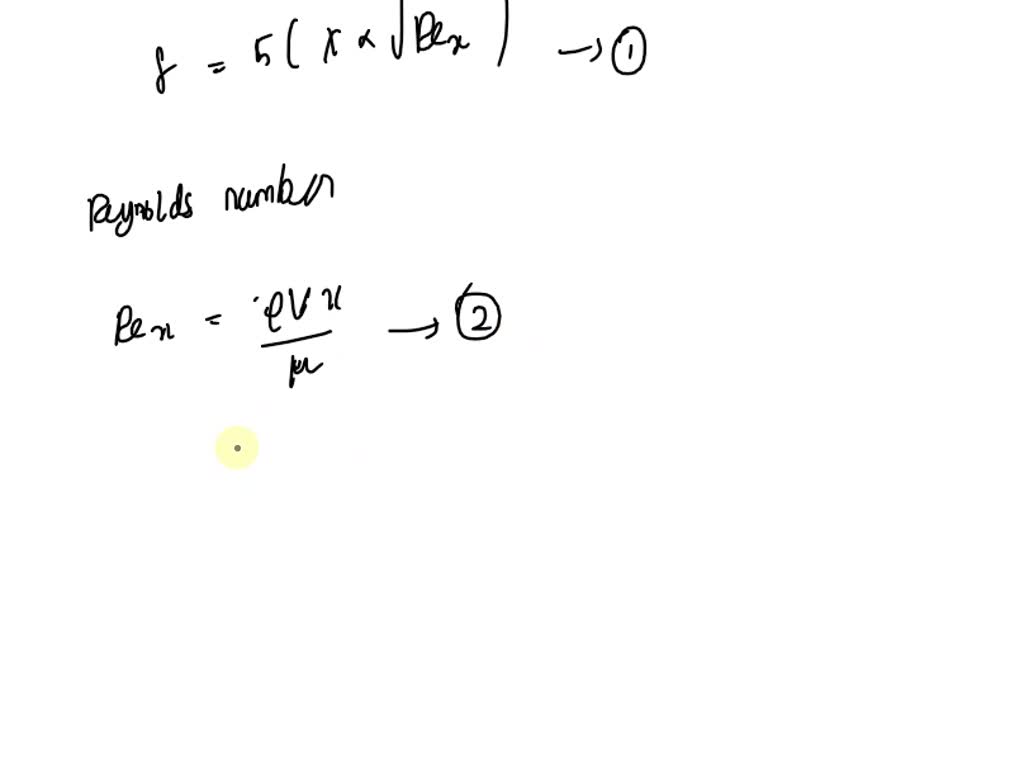 δ = 5 ( x α √Rex ) → ①
Reynolds number
Rex = ρVx / μ → ②